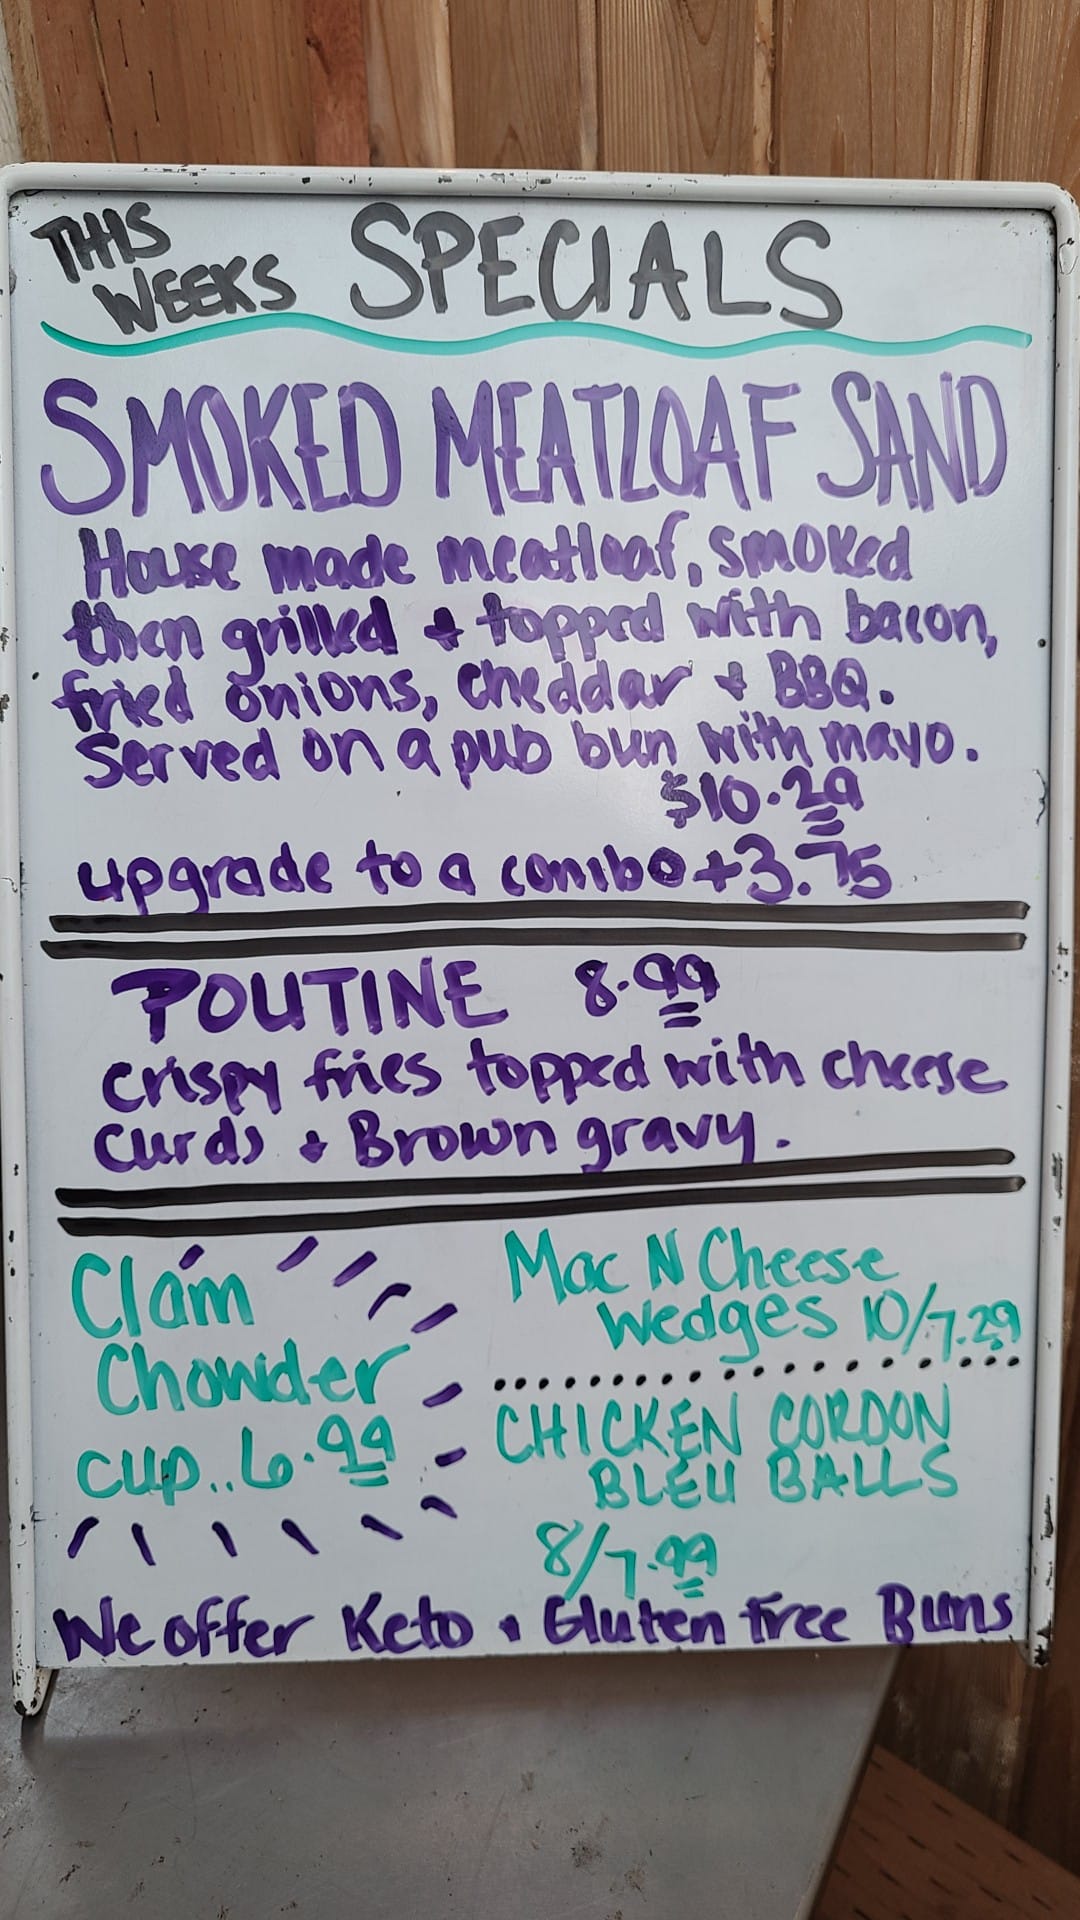 THIS
WEEKS SPECIALS
SMOKED MEATLOAF SAND
House made meatloaf, smoked
then grilled + topped with bacon,
fried onions, cheddar + BBQ.
Served on a pub bun with mayo.
$10.29
upgrade to a combo +3.75
POUTINE 8.99
crispy fries topped with cheese
curds + Brown gravy.
Clam
Chowder
cup..6.99
Mac N Cheese
Wedges 10/7.29
CHICKEN CORDON
BLEU BALLS
8/7.99
We offer Keto + Gluten free Buns